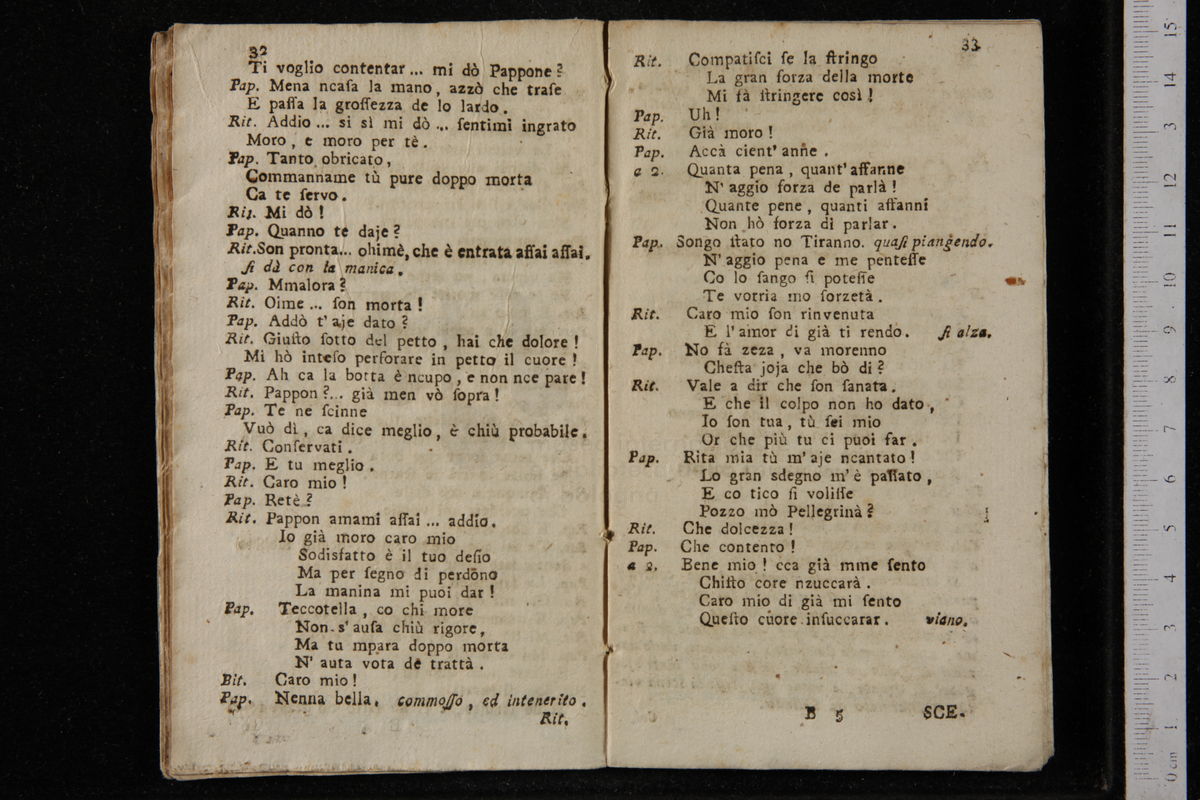 32
Ti voglio contentar ... mi dò Pappone?
Pap. Mena ncaſa la mano, azzò che traſe
E paſſa la groſſezza de lo lardo.
Rit. Addio ... si sì mi dò ... ſentimi ingrato
Moro, e moro per tè.
Pap. Tanto obricato,
Commanname tù pure doppo morta
Ca te ſervo.
Rit. Mi dò!
Pap. Quanno te daje?
Rit.Son pronta... ohimè, che è entrata aſſai aſſai.
ſi dà con la manica.
Pap. Mmalora?
Rit. Oime ... ſon morta!
Pap. Addò t'aje dato?
Rit. Giuſto ſotto del petto, hai che dolore!
Mi hò inteſo perforare in petto il cuore!
Pap. Ah ca la botta è ncupo, e non nce pare!
Rit. Pappon?... già men vò ſopra!
Pap. Te ne ſcinne
Vuò dì, ca dice meglio, è chiù probabile.
Rit. Conſervati.
Pap. E tu meglio.
Rit. Caro mio!
Pap. Retè?
Rit. Pappon amami aſſai ... addio.
Io già moro caro mio
Sodisfatto è il tuo deſio
Ma per ſegno di perdono
La manina mi puoi dar!
Pap. Teccotella, co chi more
Non s'auſa chiù rigore,
Ma tu mpara doppo morta
N'auta vota de trattà.
Rit. Caro mio!
Pap. Nenna bella. commoſſo, ed intenerito.
Rit.
33
Rit. Compatiſci ſe la ſtringo
La gran forza della morte
Mi fà ſtringere così!
Pap. Uh!
Rit. Già moro!
Pap. Accà cient' anne.
a 2. Quanta pena, quant'affanne
N'aggio forza de parlà!
Quante pene, quanti affanni
Non hò forza di parlar.
Pap. Songo ſtato no Tiranno. quaſi piangendo.
N'aggio pena e me penteſſe
Co lo ſango ſi poteſſe
Te vorria mo ſorzetà.
Rit. Caro mio ſon rinvenuta
E l'amor di già ti rendo. ſi alza.
Pap. No fà zeza, va morenno
Cheſta joja che bò di?
Rit. Vale a dir che ſon ſanata.
E che il colpo non ho dato,
Io ſon tua, tù ſei mio
Or che più tu ci puoi far.
Pap. Rita mia tù m'aje ncantato!
Lo gran sdegno m'è paſſato,
E co tico ſi voliſſe
Pozzo mò Pellegrinà?
Rit. Che dolcezza!
Pap. Che contento!
a 2. Bene mio! cca già mme ſento
Chiſto core nzuccarà.
Caro mio di già mi ſento
Queſto cuore inſuccarar. viano.
B 5 SCE.